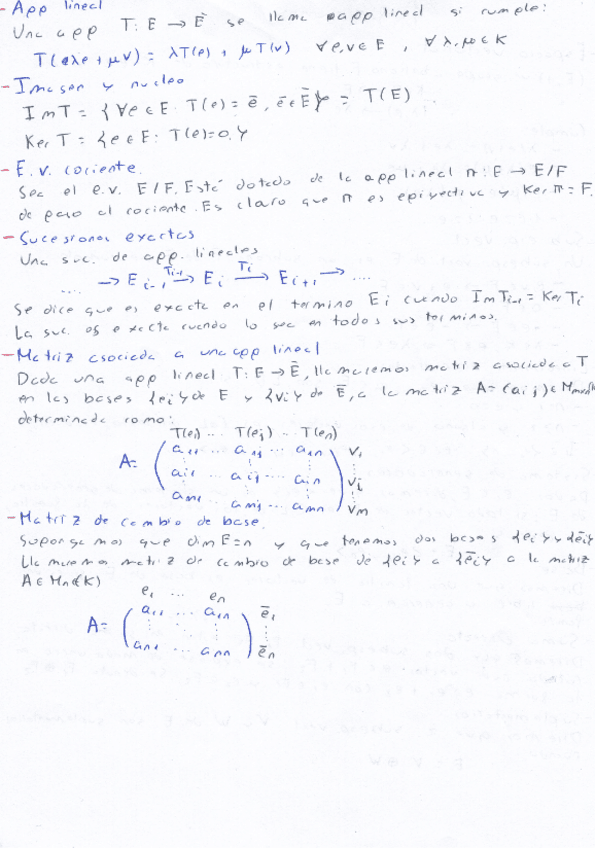 - App lineal
Una app T: E → Ē se llama app lineal si cumple:
T(λe + μv) = λT(e) + μT(v) ∀e,v∈E , ∀λ,μ∈K
- Imagen y nucleo
Im T = {∀e∈E: T(e) = ē, ē∈Ē} = T(E)
Ker T = {e∈E: T(e)=0}
- E.v. cociente.
Sea el e.v. E/F. Está dotado de la app lineal π: E → E/F
de paso al cociente. Es claro que π es epiyectiva y Ker π = F.
- Sucesiones exactas
Una suc. de app. lineales
.... → E i-1 T i-1 → E i T i → E i+1 → ....
Se dice que es exacta en el termino Ei cuando Im Ti-1 = Ker Ti
La suc. es exacta cuando lo sea en todos sus terminos.
- Matriz asociada a una app lineal
Dada una app lineal T: E → Ē, llamaremos matriz asociada a T
en las bases {ei} de E y {vi} de Ē, a la matriz A = (aij) ∈ Mmxn(K)
determinada como:
T(e1) ... T(ej) ... T(en)
a11 ... a1j ... a1n v1
A= ai1 ... aij ... ain vi
am1 ... amj ... amn vm
- Matriz de cambio de base.
Supongamos que dim E=n y que tenemos dos bases {ei} y {ēi}
Llamaremos matriz de cambio de base de {ei} a {ēi} a la matriz
A∈Mn(K)
e1 ... en
A= a11 ... a1n ē1
an1 ... ann ēn